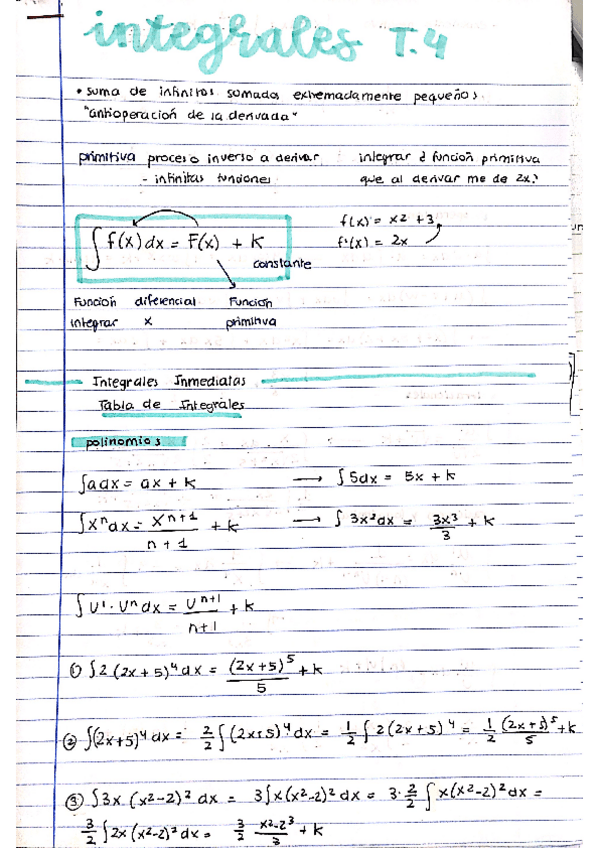 integrales T.4
• suma de infinitos sumados extremadamente pequeños.
"antioperación de la derivada"
primitiva proceso inverso a derivar
- infinitas funciones
integrar ¿ función primitiva
que al derivar me de 2x?
∫ f(x) dx = F(x) + K
constante
f(x) = x2 + 3
f'(x) = 2x
Función diferencial Función
integrar x primitiva
Integrales Inmediatas
Tabla de Integrales
polinomios
∫adx = ax + k → ∫5dx = 5x + k
∫xⁿdx = xⁿ⁺¹/n+1 + k → ∫3x²dx = 3x³/3 + k
∫U'·Uⁿdx = Uⁿ⁺¹/n+1 + k
① ∫2(2x+5)⁴dx = (2x+5)⁵/5 + k
② ∫(2x+5)⁴dx = 2/2∫(2x+5)⁴dx = 1/2∫2(2x+5)⁴ = 1/2 (2x+5)⁵/5 + k
③ ∫3x(x²-2)²dx = 3∫x(x²-2)²dx = 3·2/2∫x(x²-2)²dx =
3/2∫2x(x²-2)²dx = 3/2 x²-2³/3 + k